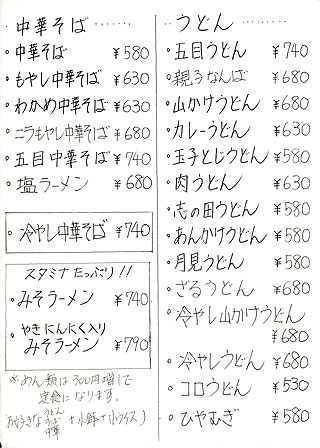 中華そば ‥‥‥
・中華そば ¥580
・もやし中華そば ¥630
・わかめ中華そば ¥630
・ニラもやし中華そば ¥680
・五目中華そば ¥740
・塩ラーメン ¥680
・冷やし中華そば ¥740
スタミナたっぷり!!
・みそラーメン ¥740
・やきにんにく入り
みそラーメン ¥790
※めん類は300円増しで
定食になります。
うどん
そば
中華
+小鉢+小ライス)
うどん ‥‥‥
・五目うどん ¥740
・親子なんば ¥680
・山かけうどん ¥680
・カレーうどん ¥630
・玉子とじうどん ¥580
・肉うどん ¥630
・志の田うどん ¥580
・あんかけうどん ¥580
・月見うどん ¥580
・ざるうどん ¥680
・冷やし山かけうどん
¥680
・冷やしうどん ¥680
・コロうどん ¥530
・ひやむぎ ¥580